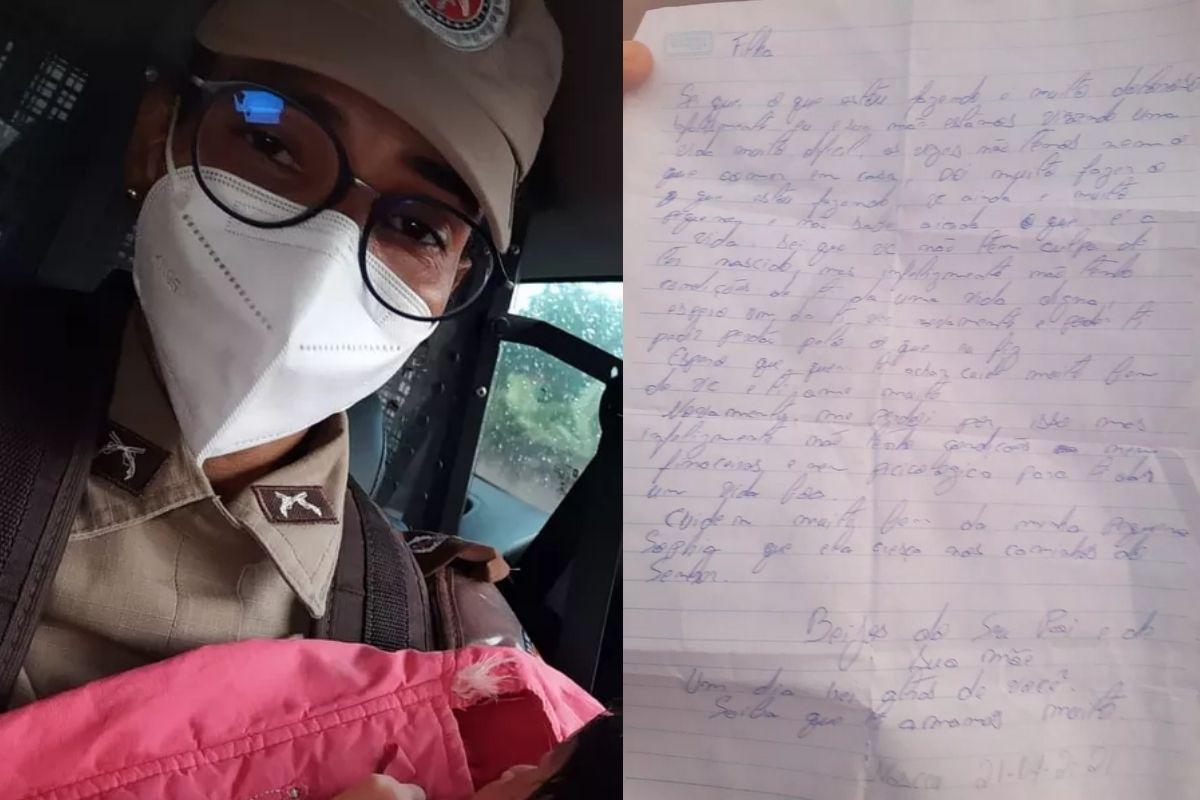 Filha
Sei que o que estou fazendo é muito doloroso
infelizmente eu e sua mãe estamos vivendo uma
vida muito dificil, as vezes não temos nem o
que comer em casa, Doi muito fazer o
que estou fazendo, vc ainda é muito
pequena e não sabe ainda o que é a
vida. Sei que vc não tem culpa de
ter nascido, mas infelizmente não tenho
condições de t da uma vida digna,
espero um dia t ver novamente e poder t
pedir perdão pelo o que eu fiz
Espero que quem t achar cuide muito bem
de vc e ti ame muito
Novamente, me perdoi por isso mas
infelizmente não tenho condições nem
financeiras e nem psicológica para t dar
um vida boa.
Cuidem muito bem da minha pequena
Sophia que ela cresça nos caminhos do
Senhor.
Beijos do Seu Pai e da
Sua mãe
Um dia irei atras de você.
Saiba que t amamos muito.
21-04-2021